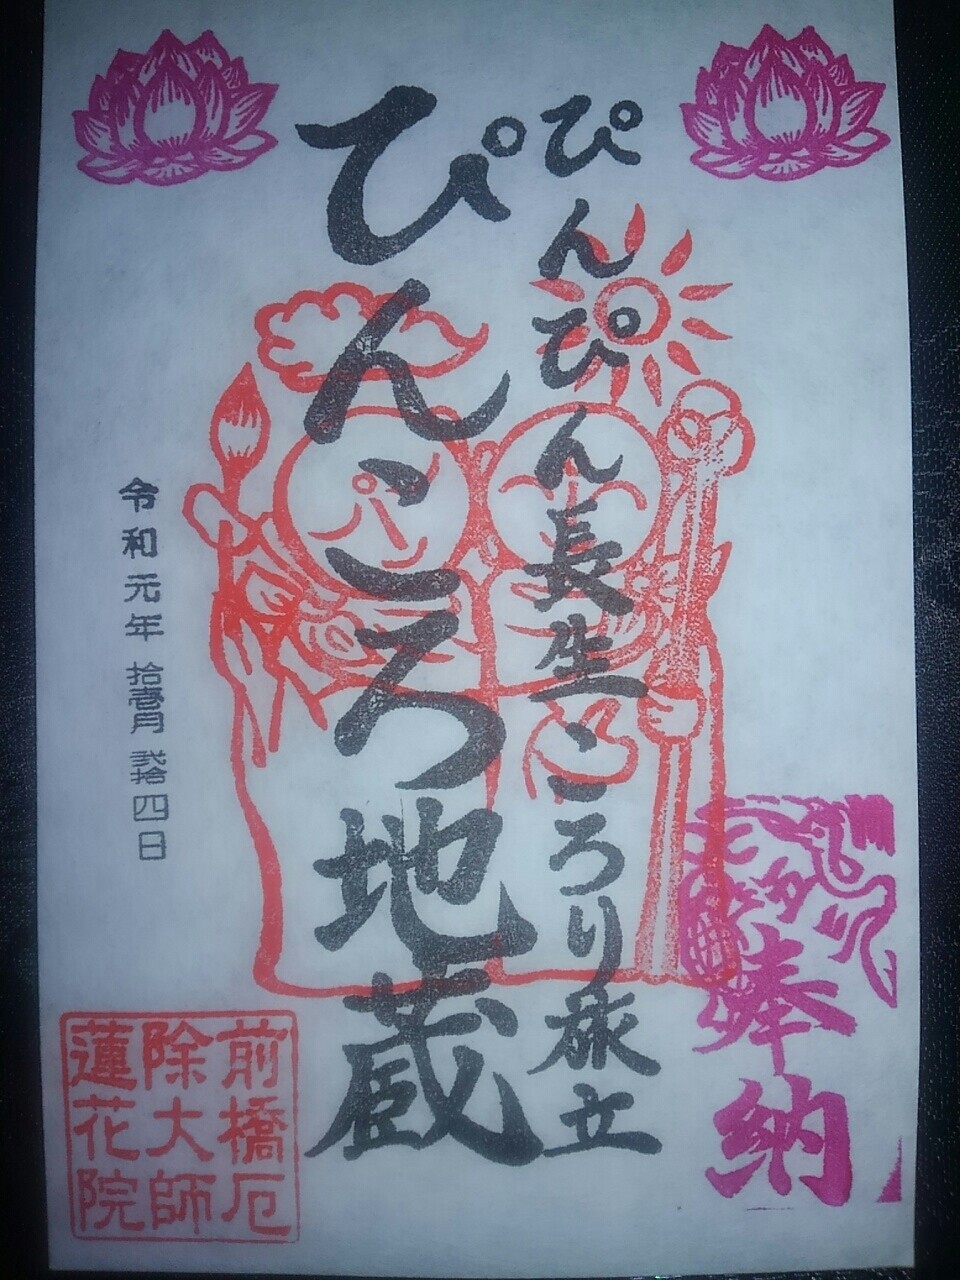 奉納
ぴんぴん長生ころり旅立
ぴんころ地蔵
令和元年拾壱月弐拾四日
前橋厄
除大師
蓮花院